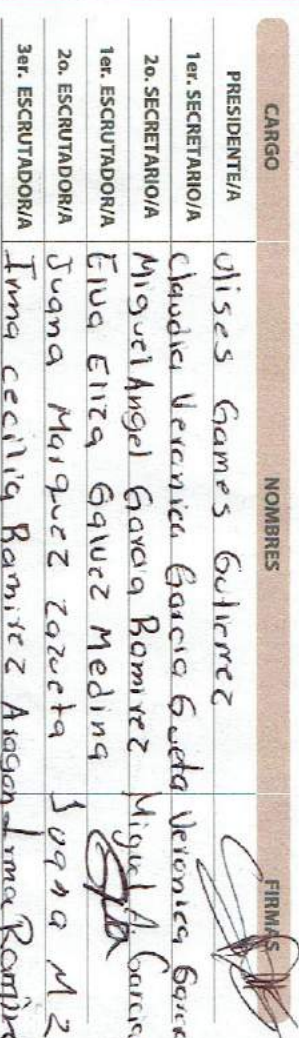 CARGO NOMBRES FIRMAS
PRESIDENTE/A Ulises Games Gutierrez
1er. SECRETARIO/A Claudia Veronica Garcia Gueta Veronica Garcia
2o. SECRETARIO/A Miguel Angel Garcia Ramirez Miguel A. Garcia
1er. ESCRUTADOR/A Elva Eliza Galvez Medina
2o. ESCRUTADOR/A Juana Marquez Zazueta Juana M Z
3er. ESCRUTADOR/A Irma cecilia Ramirez Aragon Irma Ramire